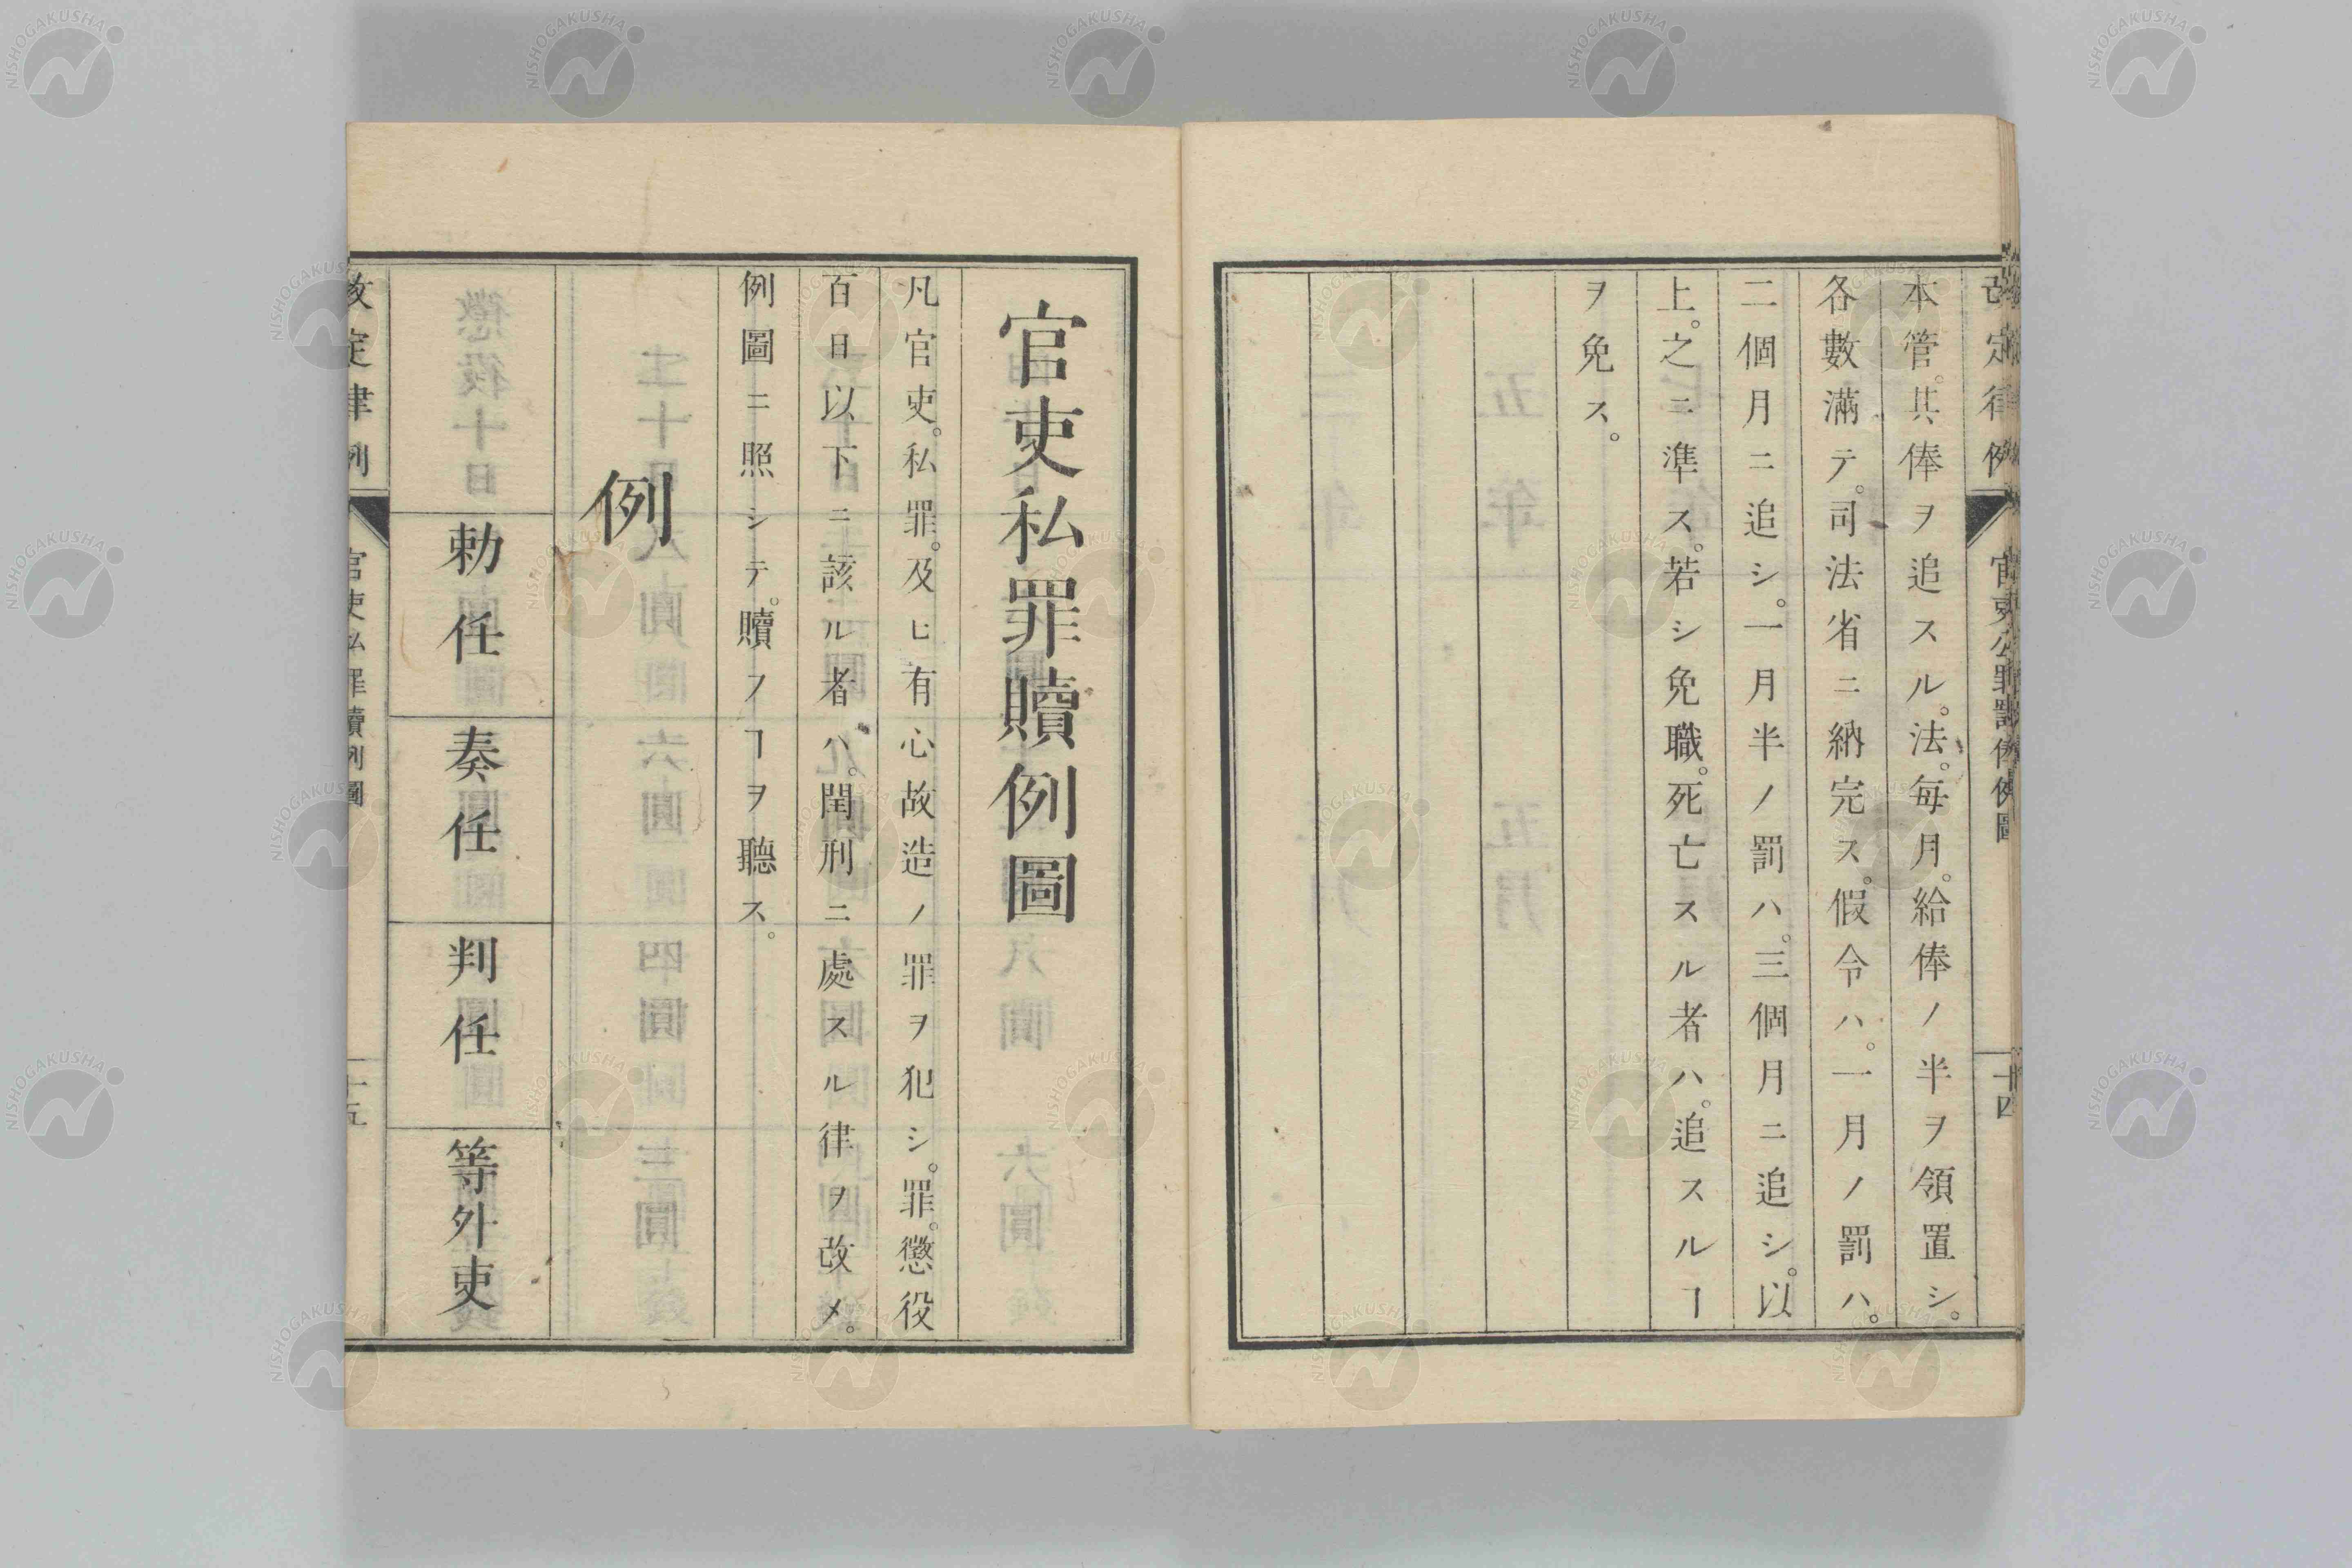 改定律例 官吏公罪罰俸例圖 十四
本管。其俸ヲ追スル。法。毎月。給俸ノ半ヲ領置シ。
各數滿テ。司法省ニ納完ス。假令ハ。一月ノ罰ハ。
二個月ニ追シ。一月半ノ罰ハ。三個月ニ追シ。以
上。之ニ準ス。若シ免職。死亡スル者ハ。追スルヿ
ヲ免ス。
官吏私罪贖例圖
凡官吏。私罪。及ヒ有心故造ノ罪ヲ犯シ。罪。懲役
百日以下ニ該ル者ハ。閏刑ニ處スル律ヲ改メ。
例圖ニ照シテ。贖フヿヲ聽ス。
例
勅任
奏任
判任
等外吏
改定律例 官吏私罪贖例圖 十五
NISHOGAKUSHA